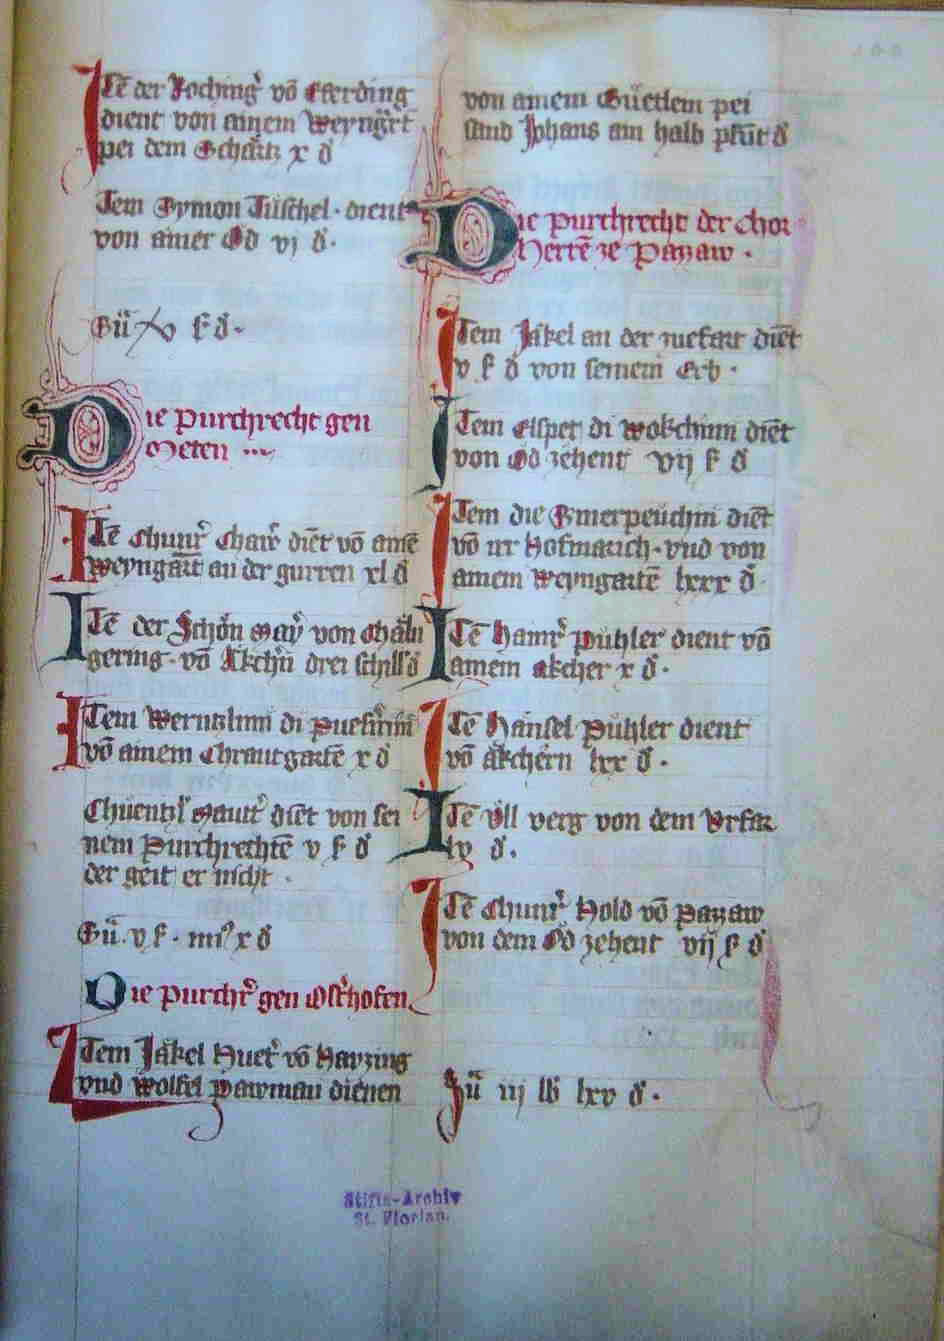 Itē der Joching᷑ vō Eferding
dient von ainem Weyng᷑rt
pei dem Schartz x ₰
Item Symon Tuschel · dient
von ainer Öd vj ₰ ·
Sṻ xv ß ₰ ·
Die purchrecht gen
Meten
Itē Chunr᷑ dīet vō ainē
Weyngārt an der gurren xl ₰
Itē der Schön May᷑ von
gering · vō Äkch᷑n drei schill ₰
Item Werntlinn di
vō ainem Chrautgartē x ₰
Chüentzl᷑ Maut᷑ dīet von sei
nem Purchrechtē v ß ₰
der geit er nicht ·
Sṻ · v ß · mī᷑ x ₰
Die purchr᷑ gen Ost᷑hofen
Item Jäkel Huet᷑ vō Harzing
vnd Wolfel Pawman dienen
von ainem Güetlem pei
sand Johans ain halb pfūt ₰
Die purchrecht der Chor
Herrē ze Pazzaw ·
Item Jäkel an der dīet
v ß ₰ von seinem Erb ·
Item Elspet di Wokchinn dīet
von Öd zehent vij ß ₰
Item die dīet
vō ir Hofmarich · vnd von
ainem Weyngartē lxxx ₰ ·
Itē Hainr᷑ Pühler dient vō
ainem akcher x ₰ ·
Itē Hänsel Pühler dient
vō äkchern lxx ₰ ·
Itē Üll verg von dem Vrfar
lv ₰ ·
Itē Chunr᷑ Hold vō Pazzaw
von dem Öd zehent vij ß ₰
Sṻ iij lb lxv ₰ ·
Stifts-Archiv
St. Florian.